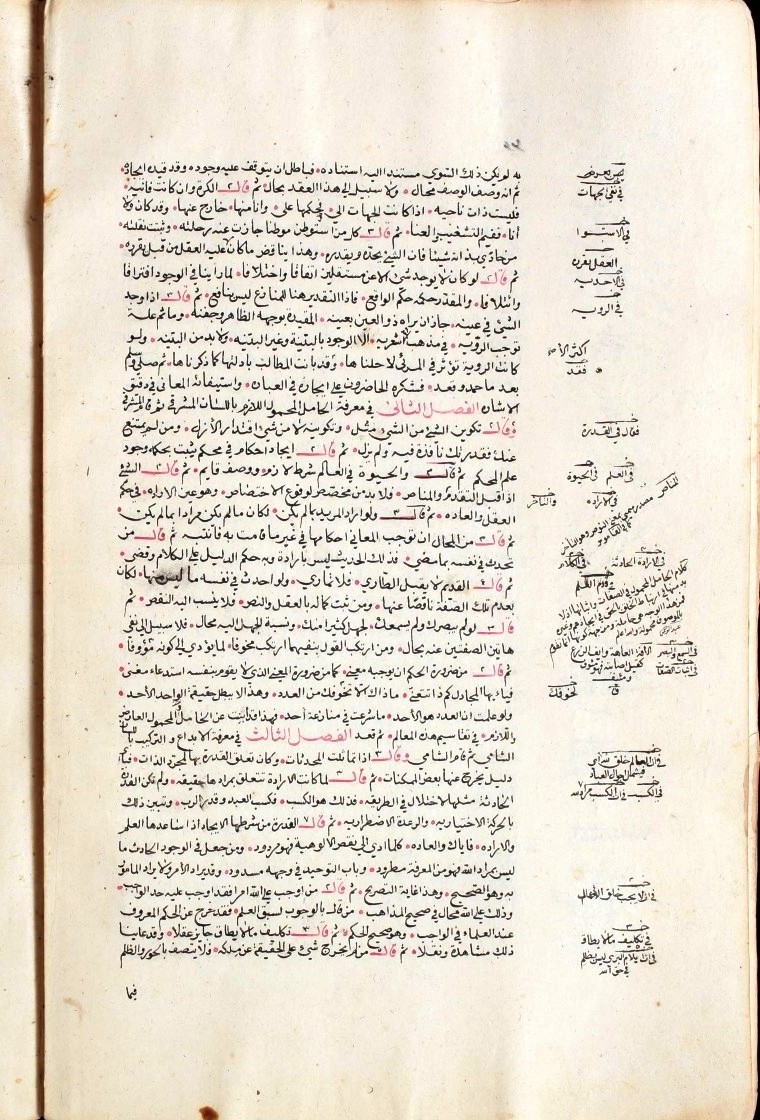 به لو يكن ذلك التسوى مستندا اليه استناده فباطل ان يتوقف عليه وجوده وقد قيده ايجاد
ثم انه وصف الوصف محال ولا سبيل الى هذا العقد بحال ثم قال الكرة وان كانت فانية
فليست ذات ناحيه اذا كانت الجهات الى فحكمها على وانا منها خارج عنها وقد كان ولا
انا ففيم التشغيب والعنا ثم قال كل من استوطن موطنا جازت عنه رحلته وثبتت نقلته
من حاذى بذاته شيئا فان الثلث يحده ويقدره وهذا يناقض ما كان عليه العقل من قبل يقرره
ثم قال لو كان لا يوجد شئ الا عن مستقلين اتفاقا واختلافا لما راينا في الوجود افتراقا
وائتلافا والمقدر حكمه حكم الواقع فاذا التقدير هنا للمنازع ليس بنافع ثم قال اذا وجد
الشئ في عينه جاز ان يراه ذو العين بعينه المقيدة بوجهه الظاهر وجفنه وما ثم علة
توجب الرؤيه في مذهب الاشعرية الا الوجود بالبنية وغير البنيه ولابد من البنيه ولو
كانت الروية تؤثر في المرئى لاحلناها وقد بانت المطالب بادلتها كما ذكرناها ثم صلى وسلم
بعد ما حمد وقعد فشكره الحاضرون على ايجازه في العبارة واستيفائه المعانى في دقيق
الاشارة الفصل الثانى في معرفة الحامل المحمول اللازم باللسان المشرقى ثم قام المشرقى
وقال تكوين الشئ من الشئ ميل وتكوينه لا من شئ اقتدار الازلى ومن لم يمتنع
عنك فقدرتك نافذة فيه ولم تزل ثم قال ايجاد احكام في محكم يثبت بحكمه وجود
علم المحكم ثم قال والحيوة في العالم شرط لازم ووصف قايم ثم قال الشئ
اذا قبل التقدم والمناص فلا بد من مخصص لوقوع الاختصاص وهو عين الاراده في حكم
العقل والعاده ثم قال ولو اراد المريد بما لم يكن لكان ما لم يكن مرادا بما لم يكن
ثم قال من المحال ان توجب المعانى احكامها في غير من قامت به فانتبه ثم قال من
تحدث في نفسه بما مضى فذلك الحديث ليس بارادة وبه حكم الدليل على الكلام وقضى
ثم قال القديم لا يقبل الطارى فلا تمارى ولو احدث في نفسه ما ليس منها لكان
بعدم تلك الصفة ناقصا عنها ومن ثبت كماله بالعقل والنص فلا ينسب اليه النقص ثم
قال لو لم يبصرك ولم يسمعك لجهل كثيرا منك ونسبة الجهل اليه محال فلا سبيل الى نفى
هاتين الصفتين عنه بحال ومن ارتكب القول بنفيهما ارتكب مخوفا لما يؤدى الى كونه مؤوفا
ثم قال من ضرورة الحكم ان يوجبه معنى كما من ضرورة المعنى الذى لا يقوم بنفسه استدعاء مغنى
فيا ايها المجادل كم ذا تتعنى ما ذاك الا لخوفك من العدد وهذا لا يبطل حقيقة الواحد الاحد
ولو علمت ان العدد هو الاحد ما شرعت في منازعة احد فهذا قد ابنت عن الحامل المحمول العارض
واللازم في تقاسيم هذه المعالم ثم قعد الفصل الثالث في معرفة الابداع والتركيب باللسان
الشامى ثم قام الشامى وقال اذا تماثلت المحدثات وكان تعلق القدرة بها لمجرد الذات فباى
دليل يخرج عنها بعض الممكنات ثم قال لما كانت الارادة تتعلق بمرادها حقيقه ولم تكن القدرة
الحادثة مثلها لاختلال في الطريقه فذلك هو الكسب فكسب العبد وقدر الرب وتبيين ذلك
بالحركة الاختياريه والرعدة الاضطراريه ثم قال القدرة من شرطها الايجاد اذا ساعدها العلم
والاراده فاياك والعاده كلما ادى الى نقص الالوهية فهو مردود ومن جعل في الوجود الحادث ما
ليس بمراد الله فهو من المعرفة مطرود وباب التوحيد في وجهه مسدود وقد يراد الامر ولا يراد المامور
به وهو الصحيح وهذا غاية التصريح ثم قال من اوجب على الله امرا فقد اوجب عليه حد الواجب
وذلك على الله محال في صحيح المذاهب من قال بالوجوب لسبق العلم فقد خرج عن الحكم المعروف
عند العلماء في الواجب وهو صحيح الحكم ثم قال تكليف ما لا يطاق جايز عقلا وقد عاينا
ذلك مشاهدة ونقلا ثم قال من لم يخرج شئ على الحقيقة عن ملكه فلا يتصف بالجور والظلم
فيما
في نفى الجهات
في الاستوا
العقل يقرره
في الاحديه
في الرويه
فقد
فقال في القدرة
في العلم
في الحيوة
في الاراده
في الارادة الحادثة
في الكلام
في قدم الكلام
في السمع والبصر
في اثبات الصفات
لخوفك
في ان العالم خلق الله
في الكسب
في انه لا يجب على الله
في تكليف ما لا يطاق
في ان ايلام البرى ليس بظلم
في حق الله